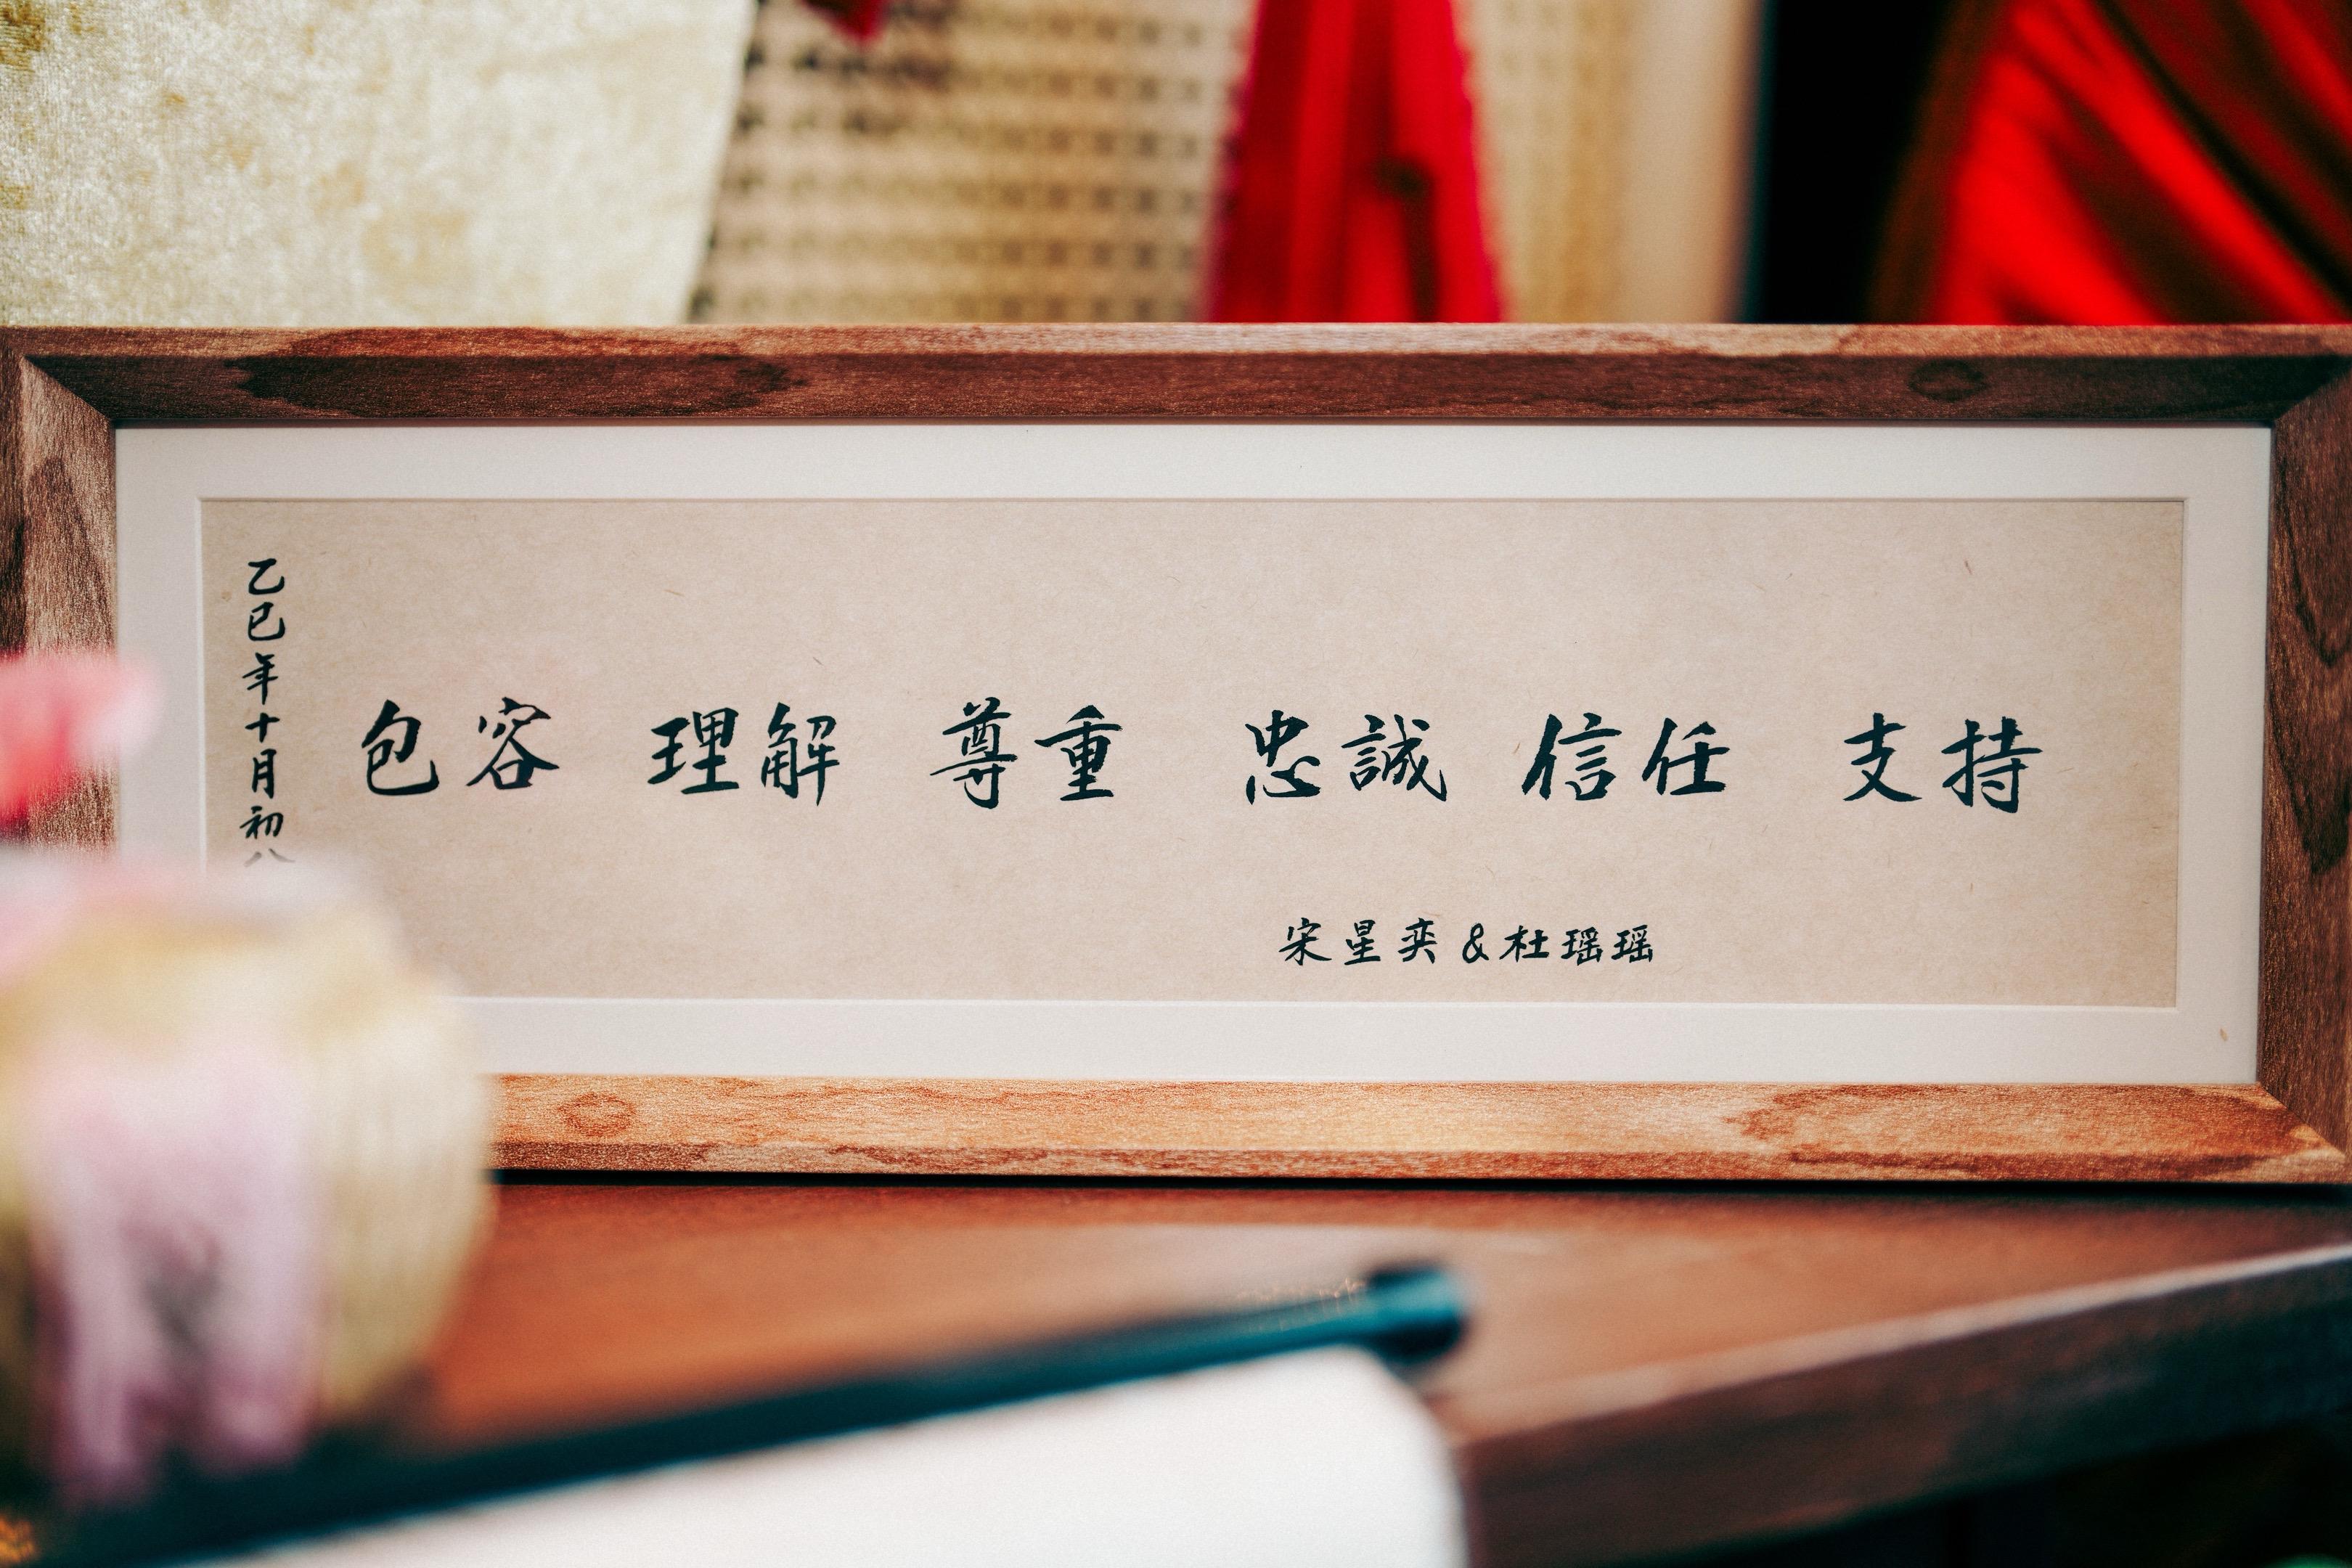 乙巳年十月初八
包容 理解 尊重 忠誠 信任 支持
宋星奕&杜瑶瑶